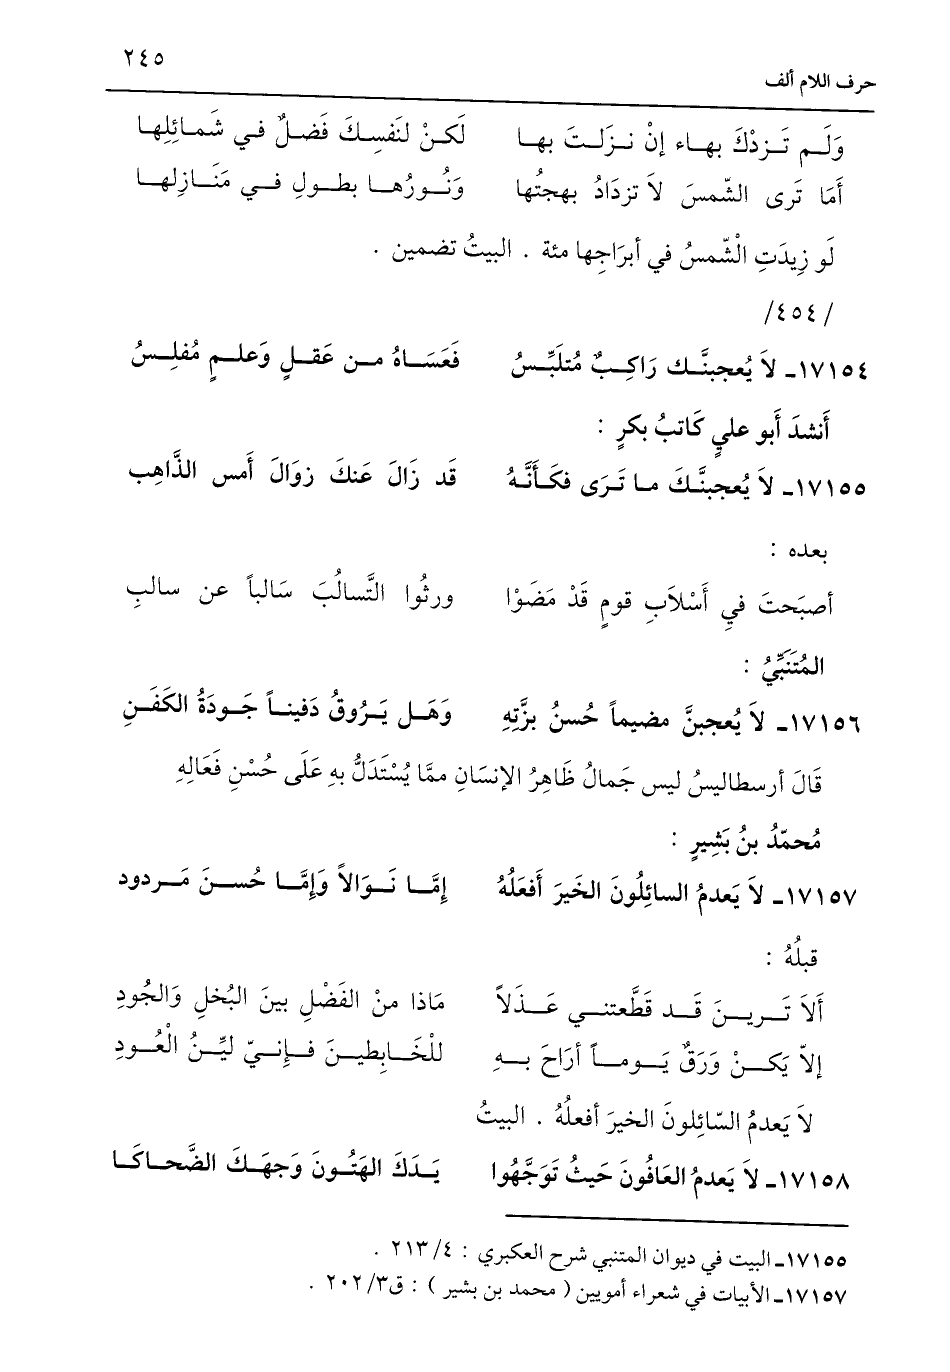 حرف اللام ألف ٢٤٥
وَلَـم تَـزدْكَ بهـاء إنْ نـزَلـتَ بهـا لَكـنْ لنَفسِـكَ فَضـلٌ فـي شَمـائِلِهـا
أمَا تَرى الشّمسَ لاَ تزدَادُ بهجتُها وَنُـورُهـا بطـولِ فـي مَنَـازلِهـا
لَو زِيدَتِ الْشّمسُ في أبرَاجِها مئة . البيتُ تضمين .
/٤٥٤/
١٧١٥٤ـ لاَ يُعجبنَّـك رَاكِـبٌ مُتلَبِّـسُ فَعَسَـاهُ مـن عَقـلٍ وَعلـمٍ مُفلِـسُ
أَنشدَ أَبو عليٍ كَاتبُ بكرٍ :
١٧١٥٥ـ لاَ يُعجبنَّـكَ مـا تَـرَى فكَـأنَّـهُ قَد زَالَ عَنكَ زوَالَ أَمس الذَّاهِب
بعده :
أصبَحتَ فيِ أَسْلاَبِ قومٍ قَدْ مَضَوْا ورثُوا التَّسالُبَ سَالباً عن سالبِ
المُتَنَبِّيُ :
١٧١٥٦ـ لاَ يُعجبنَّ مضيماً حُسنُ بزَّتِهِ وَهَـل يَـرُوقُ دَفينـاً جَـودَةُ الكَفَـنِ
قَالَ أرسطاليسُ ليس جَمالُ ظَاهِرُ الإنسَانِ ممَّا يُسْتَدَلُّ بهِ عَلَى حُسْنِ فَعَالِهِ
مُحمّدُ بنُ بَشِيرٍ :
١٧١٥٧ـ لاَ يَعدمُ السائِلُونَ الخَيرَ أَفعَلُهُ إمَّـا نَـوَالاً وَإمَّـا حُسـنَ مَـردود
قبلُهُ :
أَلاَ تَـريـنَ قَـد قَطَّعتنـي عَـذَلاً مَاذا منْ الفَضْلِ بينَ البُخلِ وَالجُودِ
إلاّ يَكـنْ وَرَقٌ يَـومـاً أرَاحَ بـهِ للْخَـابطيـنَ فـإنـيّ ليّـنُ الْعُـودِ
لاَ يَعدمُ السّائِلونَ الخيرَ أفعلُهُ . البيتُ
١٧١٥٨ـ لاَ يَعدمُ العَافُونَ حَيثُ تَوَجَّهُوا يَـدَكَ الهَتُـونَ وَجهَـكَ الضَّحـاكَـا
١٧١٥٥ـ البيت في ديوان المتنبي شرح العكبري : ٢١٣/٤ .
١٧١٥٧ـ الأبيات في شعراء أمويين ( محمد بن بشير ) : ق٢٠٢/٣ .